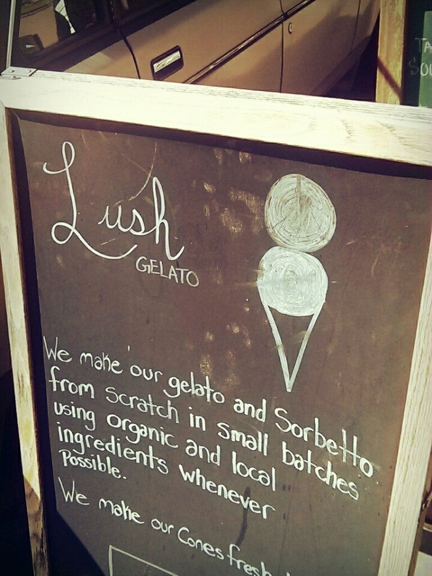 Lush
GELATO
We make our gelato and Sorbetto
from scratch in small batches
using organic and local
ingredients whenever
Possible.
We make our Cones fresh
TA
SOU